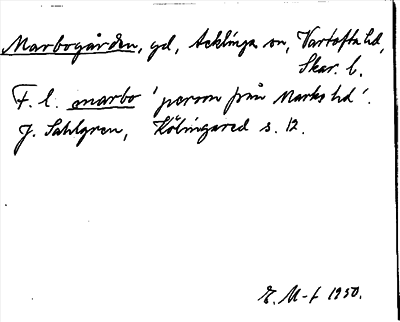 Marbogården, gd, Acklinga sn, Vartofta hd,
Skar. l.
F. l. marbo 'person från Marks hd'.
J. Sahlgren, Kölingared s. 12.
E. M-f 1950.